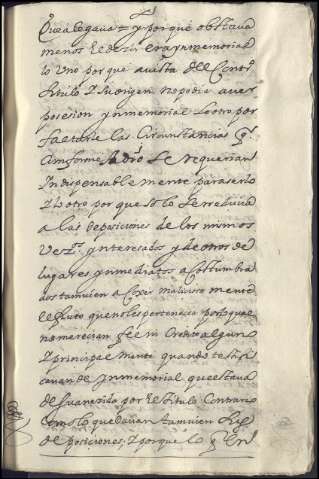 y porque obstava
menos el decir era ynmemorial
lo uno porque a vista del Contº
titulo y su origen no podia aver
posesion ynmemorial lo otro por
faltarle las Circunstancias q̃
Conforme a dro se requerian
Indispensablemente para serlo
y lo otro porque solo se reducia
a las deposiciones de los mismos
Vezs. ynteresados y de otros de
lugares ynmediatos acostumbra
dos tamvien a Coxer maliciosamente
el fruto que no les pertenecia por lo qual
no merecian fée ni Credito alguno
y principalmente quando testifi
cavan de ynmemorial que estava
desvanecido por el titulo Contrario
Como lo quedavan tamvien sus
deposiciones, y porque lo q̃